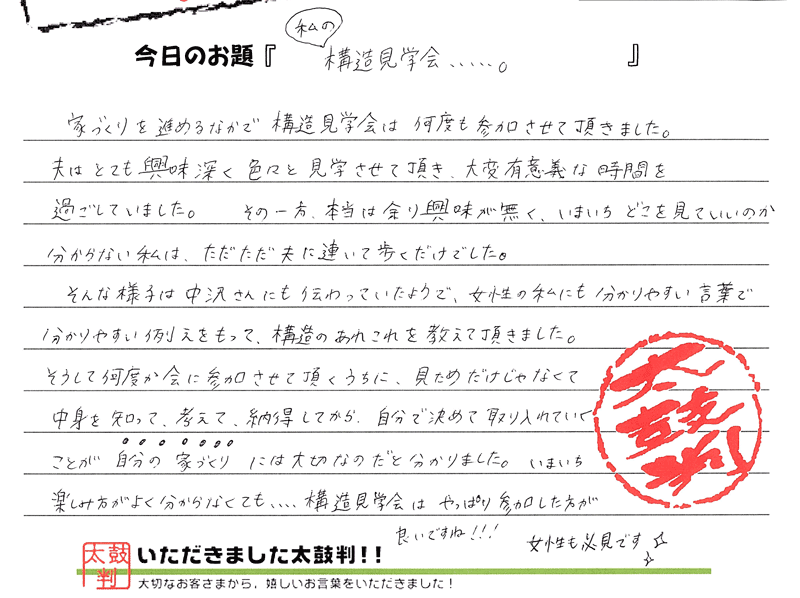 私の
今日のお題『 構造見学会......。 』
家づくりを進めるなかで 構造見学会は 何度も参加させて頂きました。
夫はとても興味深く色々と見学させて頂き、大変有意義な時間を
過ごしていました。 その一方、本当は余り興味が無く、いまいち どこを見ていいのか
分からない私は、ただただ夫に連いて歩くだけでした。
そんな様子は中沢さんにも伝わっていたようで、女性の私にも分かりやすい言葉で
分かりやすい例えをもって、構造のあれこれを教えて頂きました。
そうして何度か会に参加させて頂くうちに、見ためだけじゃなくて
中身を知って、考えて、納得してから、自分で決めて取り入れていく
ことが 自分の 家づくり には大切なのだと分かりました。 いまいち
楽しみ方がよく分からなくても.... 構造見学会は やっぱり参加した方が
良いですね!!! 女性も必見です☆
太鼓判
太鼓判 いただきました太鼓判!!
大切なお客さまから、嬉しいお言葉をいただきました!